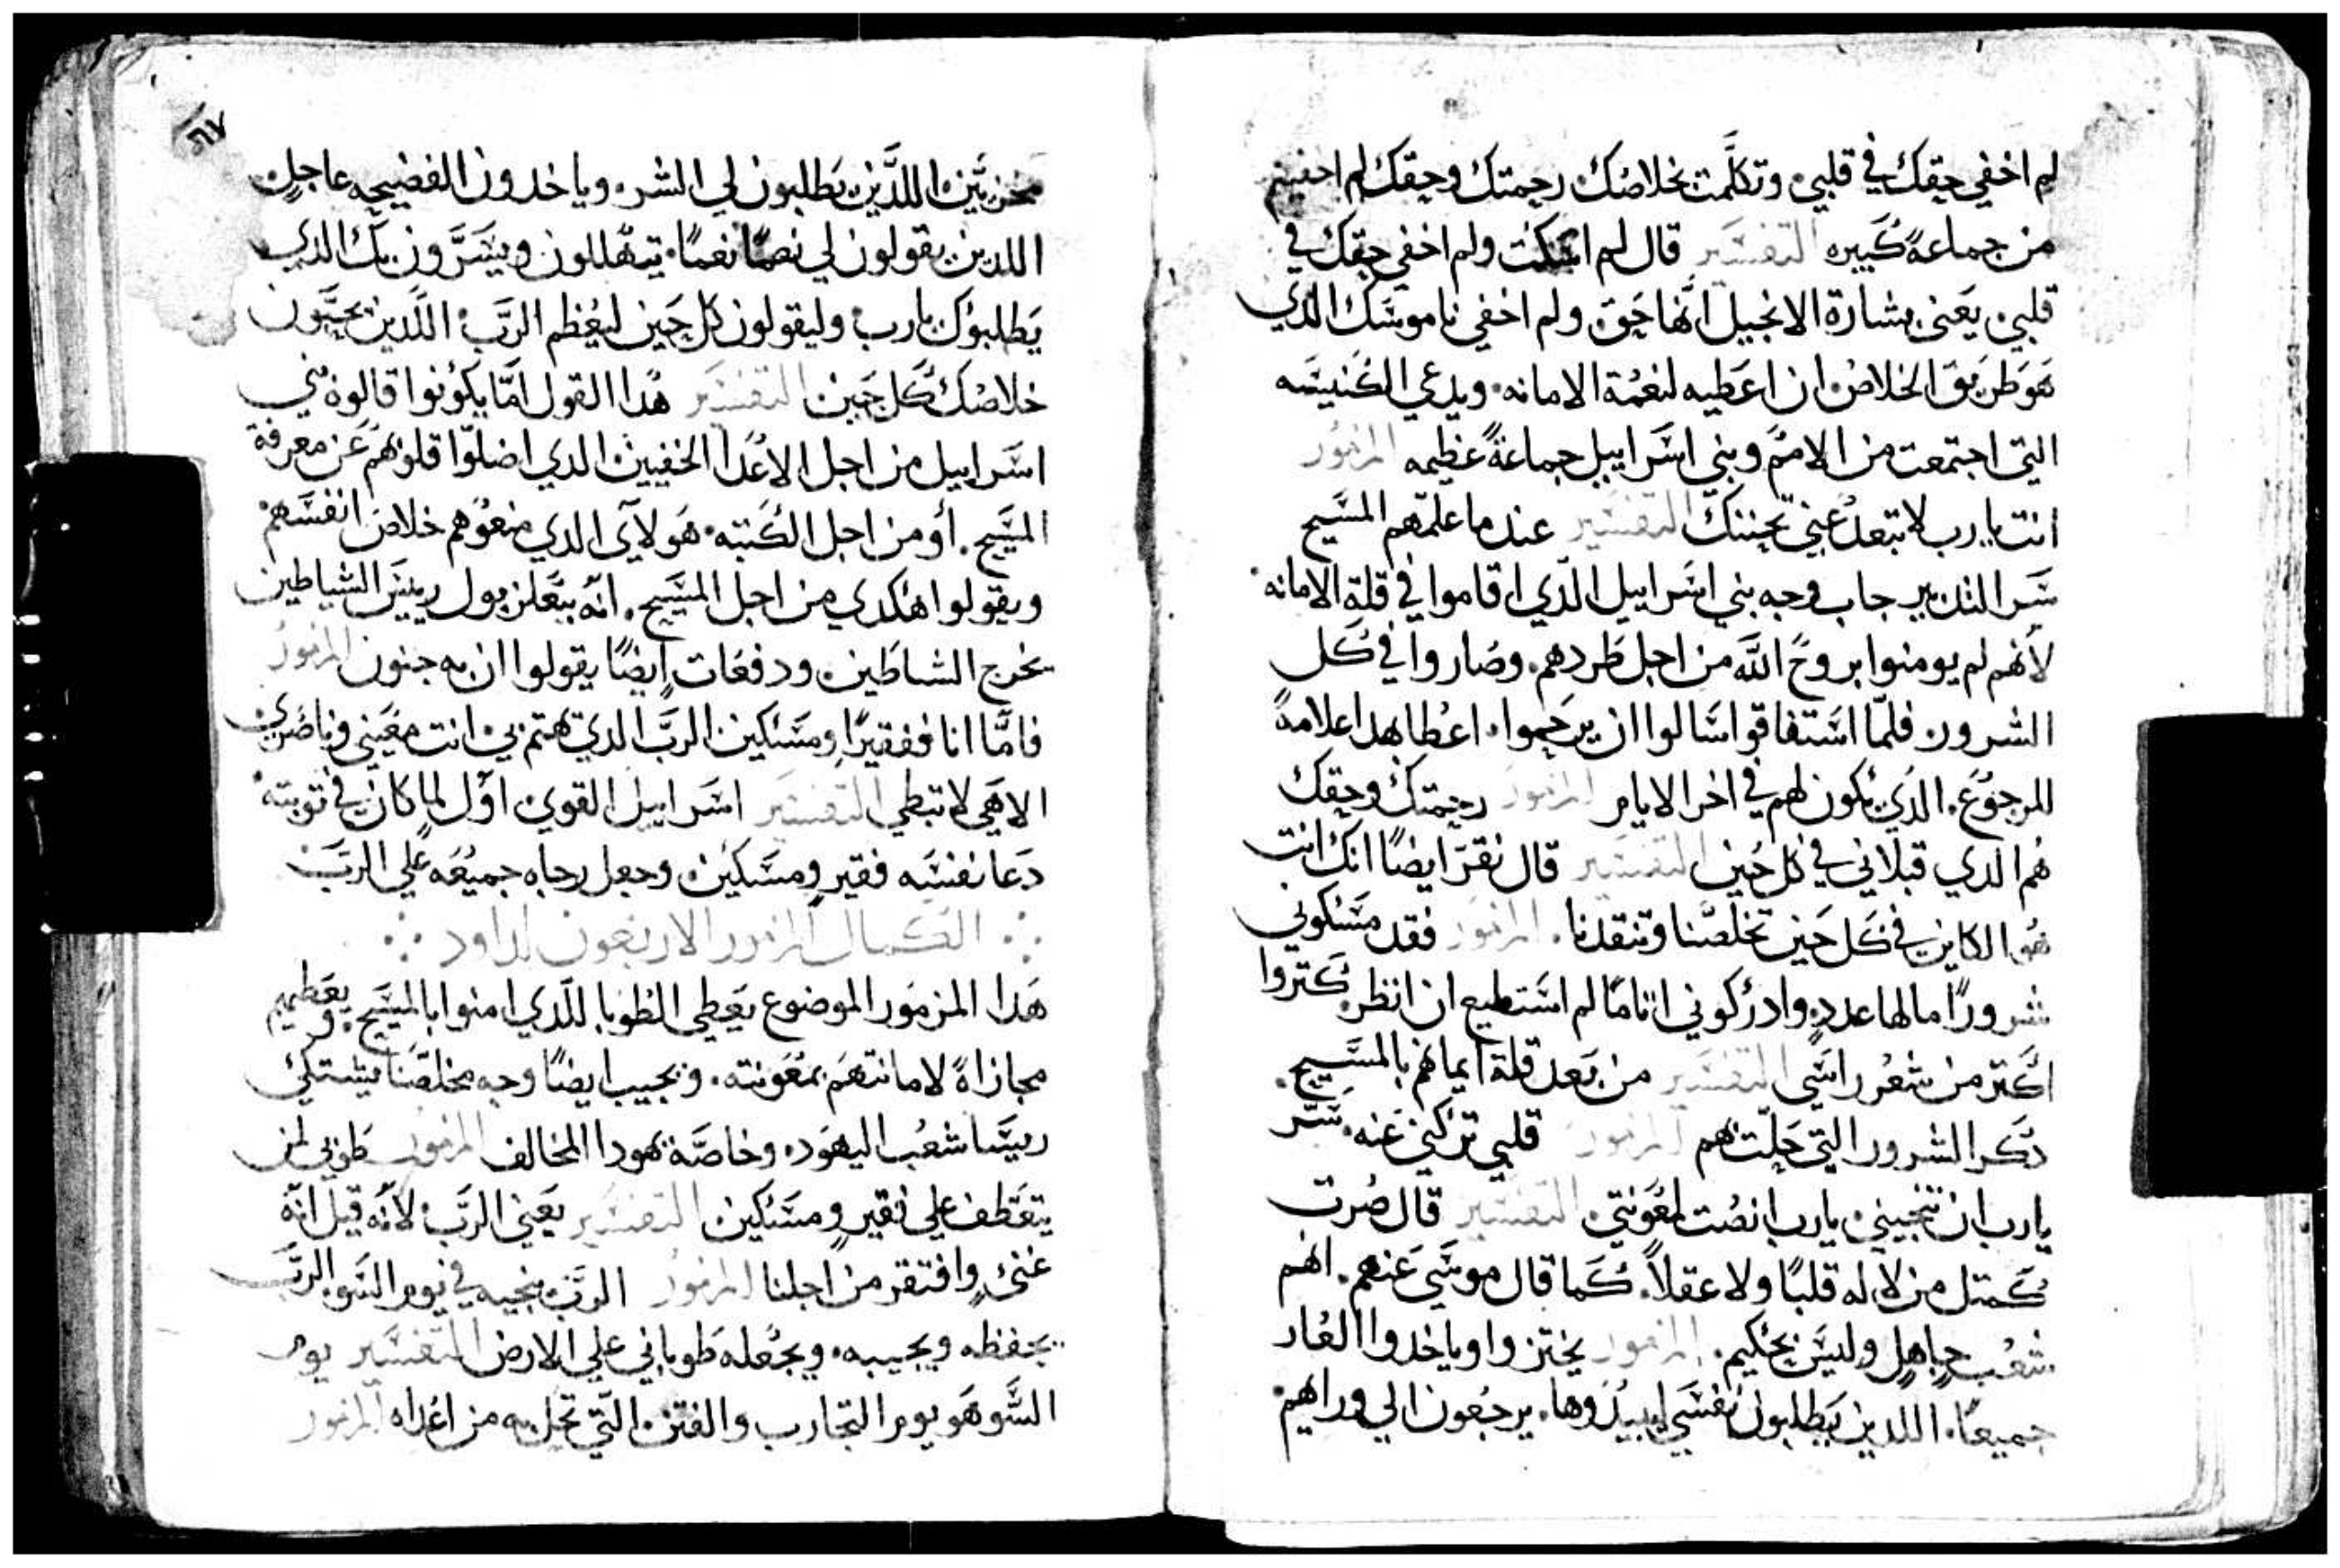 لم اخفي حقك في قلبي وتكلَّمت بخلاصك رحمتك وحقك لم اخفيهم
من جماعةً كبيره التفسير قال لم اسكت ولم اخفي حقك في
قلبي يعني بشارة الانجيل انَّها حق ولم اخفي ناموسك الدي
هو طريق الخلاص ان اعطيه لنعمة الامانه ويدعي الكنيسه
التي اجتمعت من الامم وبني اسراييل جماعةً عظيمه المزمور
انت يا رب لا تبعد عني تحننك التفسير عند ما علمهم المسيح
سر التدبير جاب وجه بني اسراييل الدي اقاموا في قلة الامانه
لأنهم لم يومنوا بروح اللَّه من اجل طردهم وصاروا في كل
الشرور فلمَّا استفاقوا سالوا ان يرحموا اعطا هدا علامةً
للرجوع الدي يكون لهم في اخر الايام المزمور رحمتك وحقك
هُم الدي قبلاني في كل حين التفسير قال نقر ايضًا انك انت
هو الكاين في كل حين تخلصنا وتنقدنا المزمور فقد مسكوني
شرورًا ما لها عدد وادركوني اتامًا لم استطيع ان انظر كتروا
اكتر من شعر راسي التفسير من بعد قلة ايمانهم بالمسيح
دكر الشرور التي حلّت بهم المزمور قلبي تركني عنه سر
يا رب ان تنجيني يا رب انصت لمعونتي التفسير قال صرت
كمتل من لا له قلبًا ولا عقلاً كما قال موسي عنهم انهم
شعب جاهل وليس بحكيم المزمور يختزوا وياخدوا العار
جميعًا اللدين يطلبون نفسي ليبيدوها يرجعون الي وراهم
٦٧
مخزيّين اللدَّين يطلبون لي الشر وياخدون الفضيحه عاجلٍ
اللدين يقولون لي نعمًا نعمًا يتهللون ويسرَّون بك الدي
يطلبوك يا رب وليقولون كل حين ليعظم الربَّ اللَّدين يحبَّون
خلاصك كل حين التفسير هدا القول امَّا يكونوا قالوه بني
اسراييل من اجل الاعدا الخفيين الدي اضلوا قلوبهم عن معرفة
المسيح أو من اجل الكتبه هولآي الدي منعوهم خلاص انفسهم
ويقولوا هكدي من اجل المسيح انَّه ببعلزبول رييس الشياطين
يخرج الشاطين ودفعات ايضًا يقولوا ان به جنون المزمور
فامَّا انا ففقيرًا ومسكين الربَّ الدي يهتم بي انت معيني وناصري
الاهي لا تبطي التفسير اسراييل القوي اوّل لما كان في توبته
دعا نفسه فقير ومسكين وجعل رجاه جميعه علي الربَّ
الكمال المزمور الاربعون لداود
هدا المزمور الموضوع يعطي الطوبا للَّدي امنوا بالمسيح ويعطيهم
مجازاةً لامانتهم بمعونته ويجيب ايضًا وجه مخلصنا يشتكي
رييسا شعب اليهود وخاصَّة يهودا المخالف المزمور طوبي لمن
يتعطف علي فقير ومسكين التفسير يعني الربَّ لأنّه قيل انّه
غنيٍ وافتقر من اجلنا المزمور الربَّ ينجيه في يوم السَو الربَّ
يحفظه ويحييه ويجعله طوباني علي الارض التفسير يوم
السَّو هو يوم التجارب والفتن التَّي تحل به من اعداه المزمور